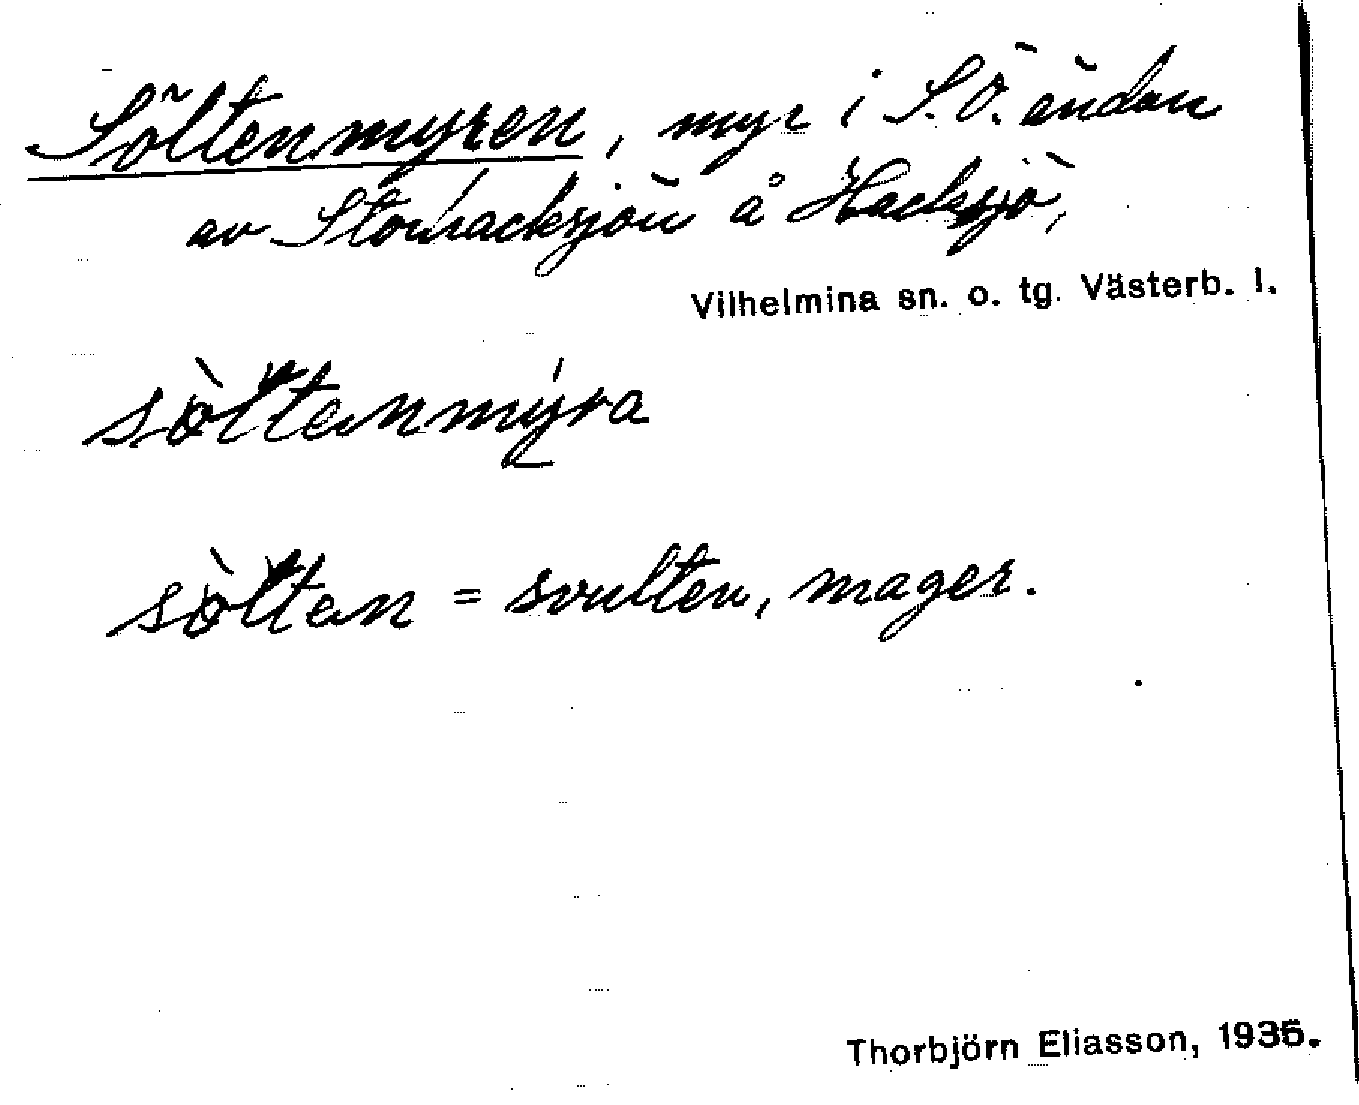 Söltenmyren, myr i S.Ö. ändan
av Storhacksjön å Hacksjö,
Vilhelmina sn. o. tg. Västerb. l.
sòltenmýra
sòlten = svulten, mager.
Thorbjörn Eliasson, 1935.